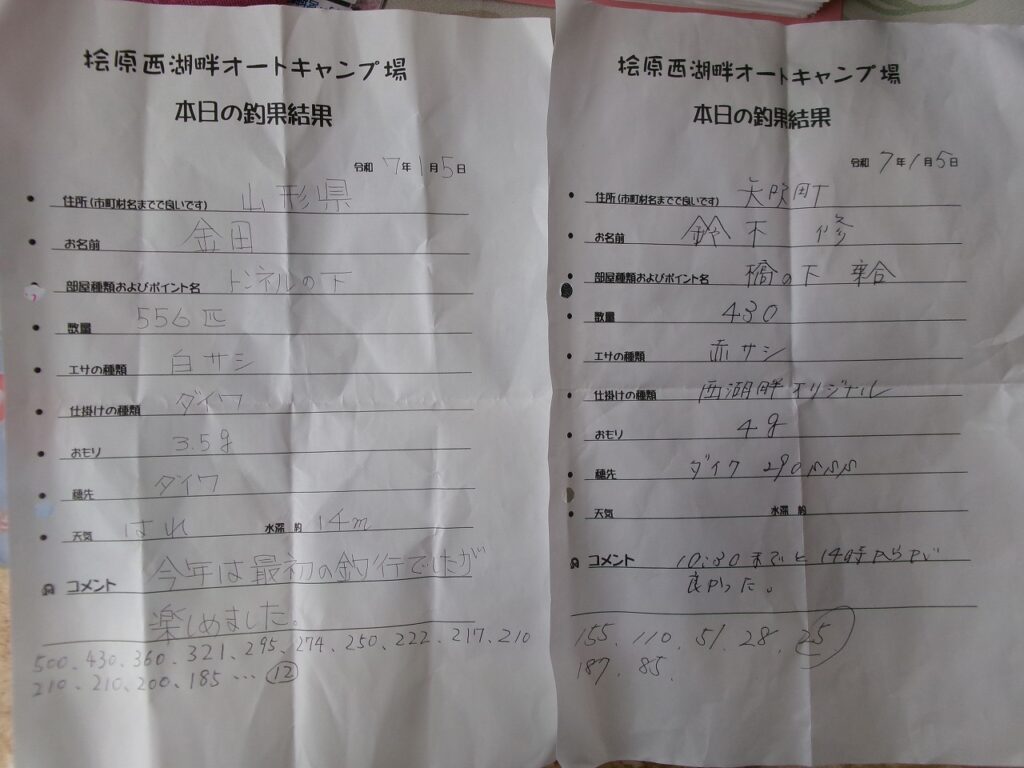 桧原西湖畔オートキャンプ場
本日の釣果結果
令和 7年1月5日
住所(市町村名までで良いです) 山形県
お名前 金田
部屋種類およびポイント名 トンネルの下
数量 556匹
エサの種類 白サシ
仕掛けの種類 ダイワ
おもり 3.5g
穂先 ダイワ
天気 はれ 水深 約 14m
コメント 今年は最初の釣行でしたが
楽しめました。
500、430、360、321、295、274、250、222、217、210
210、210、200、185 … ⑫
桧原西湖畔オートキャンプ場
本日の釣果結果
令和 7年1月5日
住所(市町村名までで良いです) 矢吹町
お名前 鈴木 修
部屋種類およびポイント名 橋の下
数量 430
エサの種類 赤サシ
仕掛けの種類 西湖畔オリジナル
おもり 4g
穂先 ダイワ 290SSS
天気 水深 約
コメント 10:30までと14時からが
良かった。
155、110、51、28、25
187、85